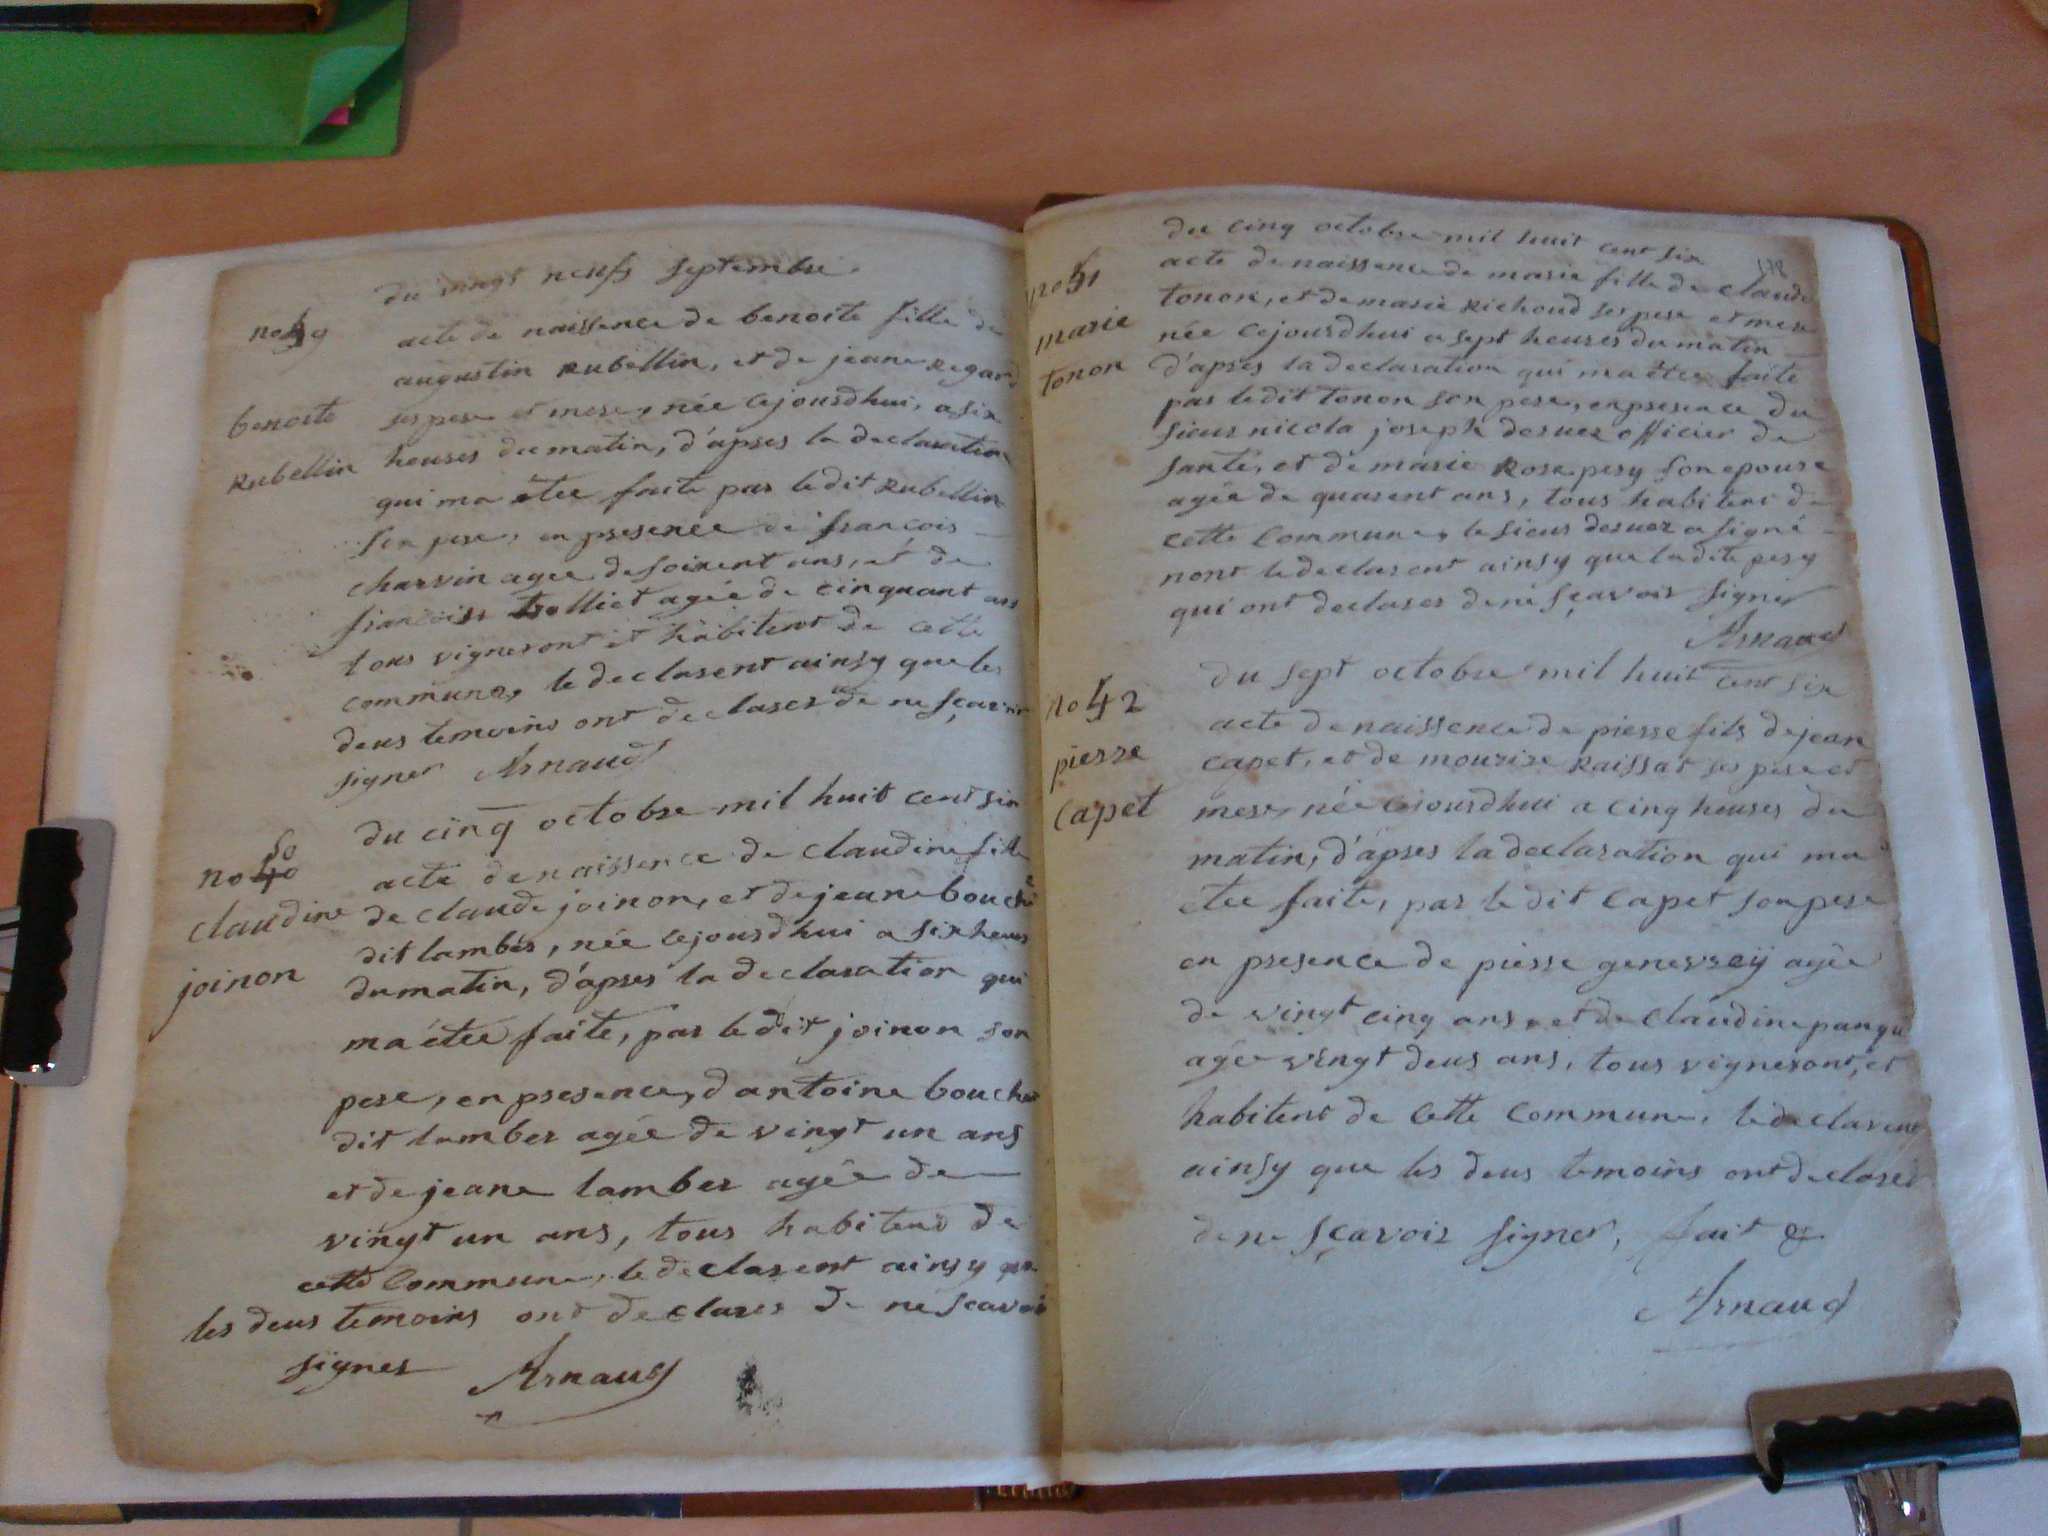 du vingt neufs septembre.
no 49
acte de naissence de benoite fille de
augustin Rubellin, et de jeane Regard
benoite
ses pere et mere, née cejourdhui, a six
Rubellin
heures du matin, d'apres la declaration
qui ma étee faite par ledit Rubellin
son pere, en presence de françois
charvin agee de soixent ans, et de
françois trolliet agée de cinquant ans
tous vigneront et habitent de cette
commune, le declarent ainsy que les
deus temoins ont declarer de ne sçavoir
signer Arnaud
du cinq octobre mil huit cent six
50
no 40
acte de naissence de claudine fille
claudine
de claude joinon, et de jeane
joinon
dit lamber, née cejourdhui a six heures
du matin, d'apres la declaration qui
ma étee faite, par ledit joinon son
pere, en presence, d antoine
dit lamber agée de vingt un ans
et de jeane lamber agée de
vingt un ans, tous habitend de
cette commune, le declarent ainsy que
les deus temoins ont declarer de ne scavoir
signer Arnaud
178
du cinq octobre mil huit cent six
no 51
acte de naissence de marie fille de claude
marie
tonon, et de marie Richoud ses pere et mere
tonon
née cejourdhui a sept heures du matin
d'apres la declaration qui ma étee faite
par ledit tonon son pere, en presence du
sieur nicola joseph officier de
santé, et de marie Rose pesy son epouse
agée de quarent ans, tous habitent de
cette commune, le sieur a signé
nont le declarent ainsy que ladite pesy
qui ont declarer de ne sçavoir signer
Arnaud
du sept octobre mil huit cent six
no 42
acte de naissence de pierre fils de jean
pierre
capet, et de Raissat ses pere et
capet
mere, née cejourdhui a cinq heures du
matin, d'apres la declaration qui ma
étee faite, par ledit capet son pere
en presence de pierre genevrey agée
de vingt cinq ans, et de claudine
agée vingt deus ans, tous vigneront, et
habitent de cette commune, le declarent
ainsy que les deus temoins ont declarer
de ne sçavoir signer, fait &
Arnaud